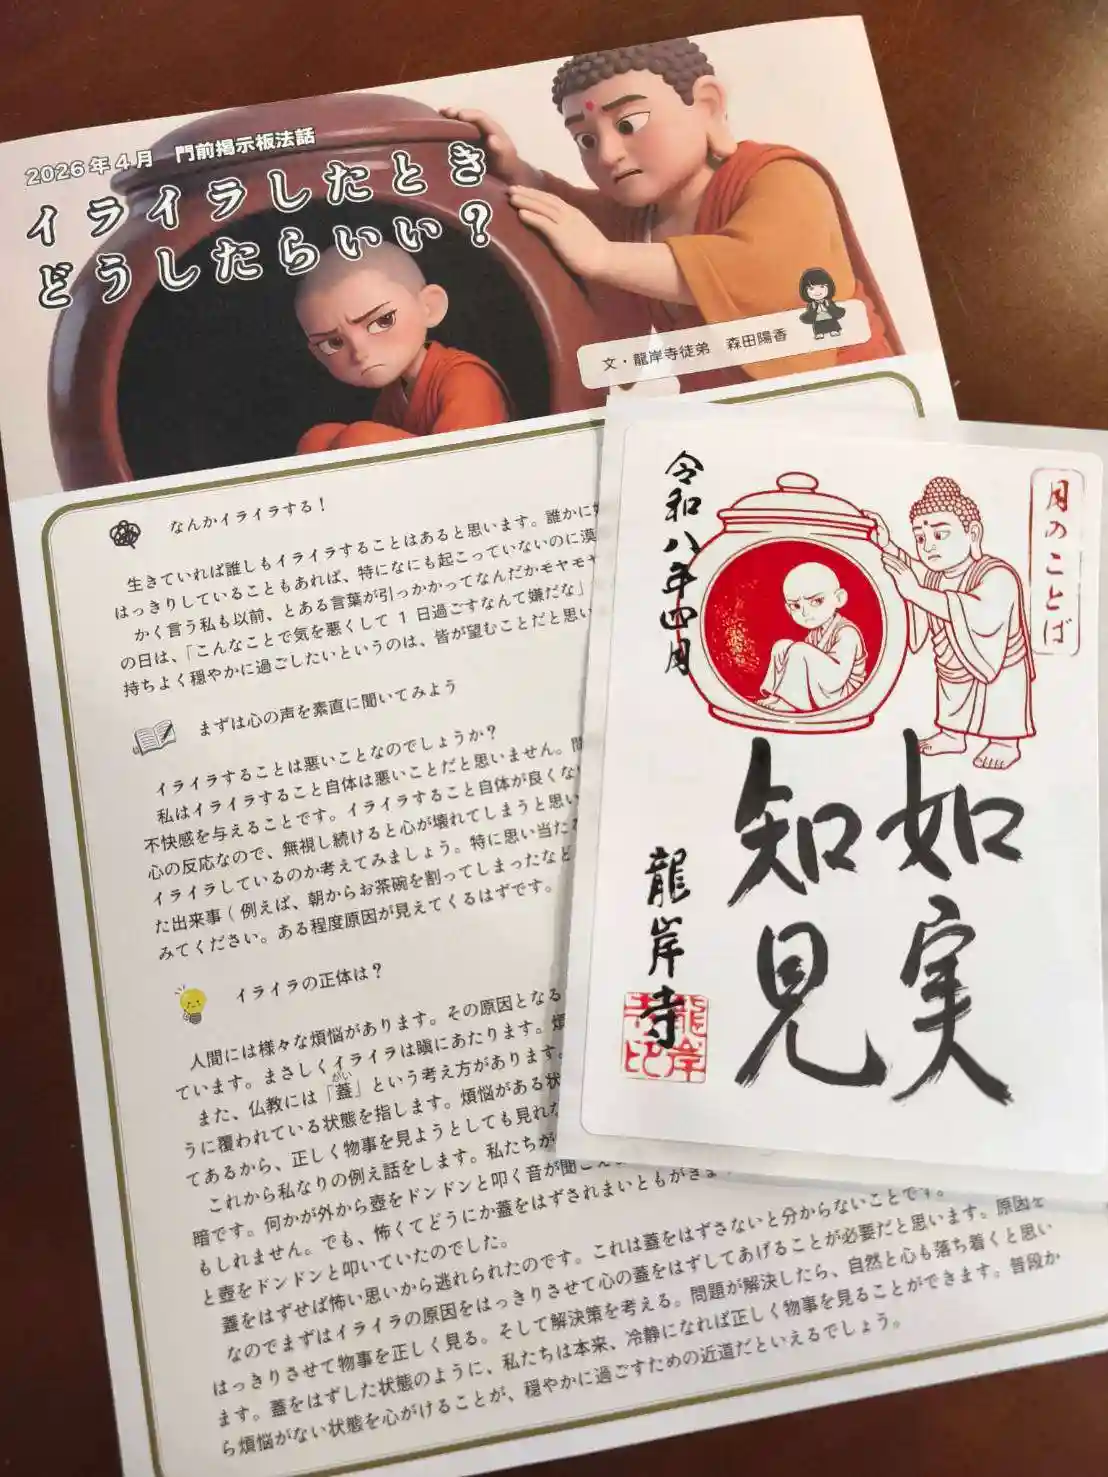 2026年4月 門前掲示板法話
イライラしたとき
どうしたらいい？
文・龍岸寺徒弟 森田陽香
なんかイライラする！
生きていれば誰しもイライラすることはあると思います。誰かに
はっきりしていることもあれば、特になにも起こっていないのに漠
かく言う私も以前、とある言葉が引っかかってなんだかモヤモヤ
の日は、「こんなことで気を悪くして1日過ごすなんて嫌だな」
持ちよく穏やかに過ごしたいというのは、皆が望むことだと思い
まずは心の声を素直に聞いてみよう
イライラすることは悪いことなのでしょうか？
私はイライラすること自体は悪いことだと思いません。
不快感を与えることです。イライラすること自体が良くない
心の反応なので、無視し続けると心が壊れてしまうと思い
イライラしているのか考えてみましょう。特に思い当たる
た出来事(例えば、朝からお茶碗を割ってしまったなど
みてください。ある程度原因が見えてくるはずです。
イライラの正体は？
人間には様々な煩悩があります。その原因となる
ています。まさしくイライラは瞋にあたります。煩
また、仏教には「蓋」という考え方があります。
がい
うに覆われている状態を指します。煩悩がある状
てあるから、正しく物事を見ようとしても見れな
これから私なりの例え話をします。私たちが
暗です。何かが外から壺をドンドンと叩く音が聞こえ
もしれません。でも、怖くてどうにか蓋をはずされまいともがきま
と壺をドンドンと叩いていたのでした。
蓋をはずせば怖い思いから逃れられたのです。これは蓋をはずさないと分からないことです。
なのでまずはイライラの原因をはっきりさせて心の蓋をはずしてあげることが必要だと思います。原因を
はっきりさせて物事を正しく見る。そして解決策を考える。問題が解決したら、自然と心も落ち着くと思い
ます。蓋をはずした状態のように、私たちは本来、冷静になれば正しく物事を見ることができます。普段か
ら煩悩がない状態を心がけることが、穏やかに過ごすための近道だといえるでしょう。
月のことば
令和八年四月
如実
知見
龍岸寺
龍岸
寺印